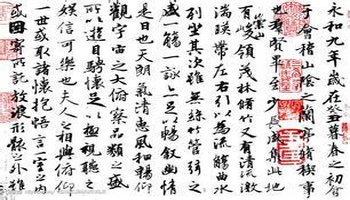 永和九年歲在癸丑暮春之初會
于會稽山陰之蘭亭脩稧事
也羣賢畢至少長咸集此地
崇山
有峻領茂林脩竹又有清流激
湍暎帶左右引以為流觴曲水
列坐其次雖無絲竹管弦之
盛一觴一詠亦足以暢叙幽情
是日也天朗氣清惠風和暢仰
觀宇宙之大俯察品類之盛
所以遊目騁懷足以極視聽之
娛信可樂也夫人之相與俯仰
一世或取諸懷抱悟言一室之內
或因寄所託放浪形骸之外雖